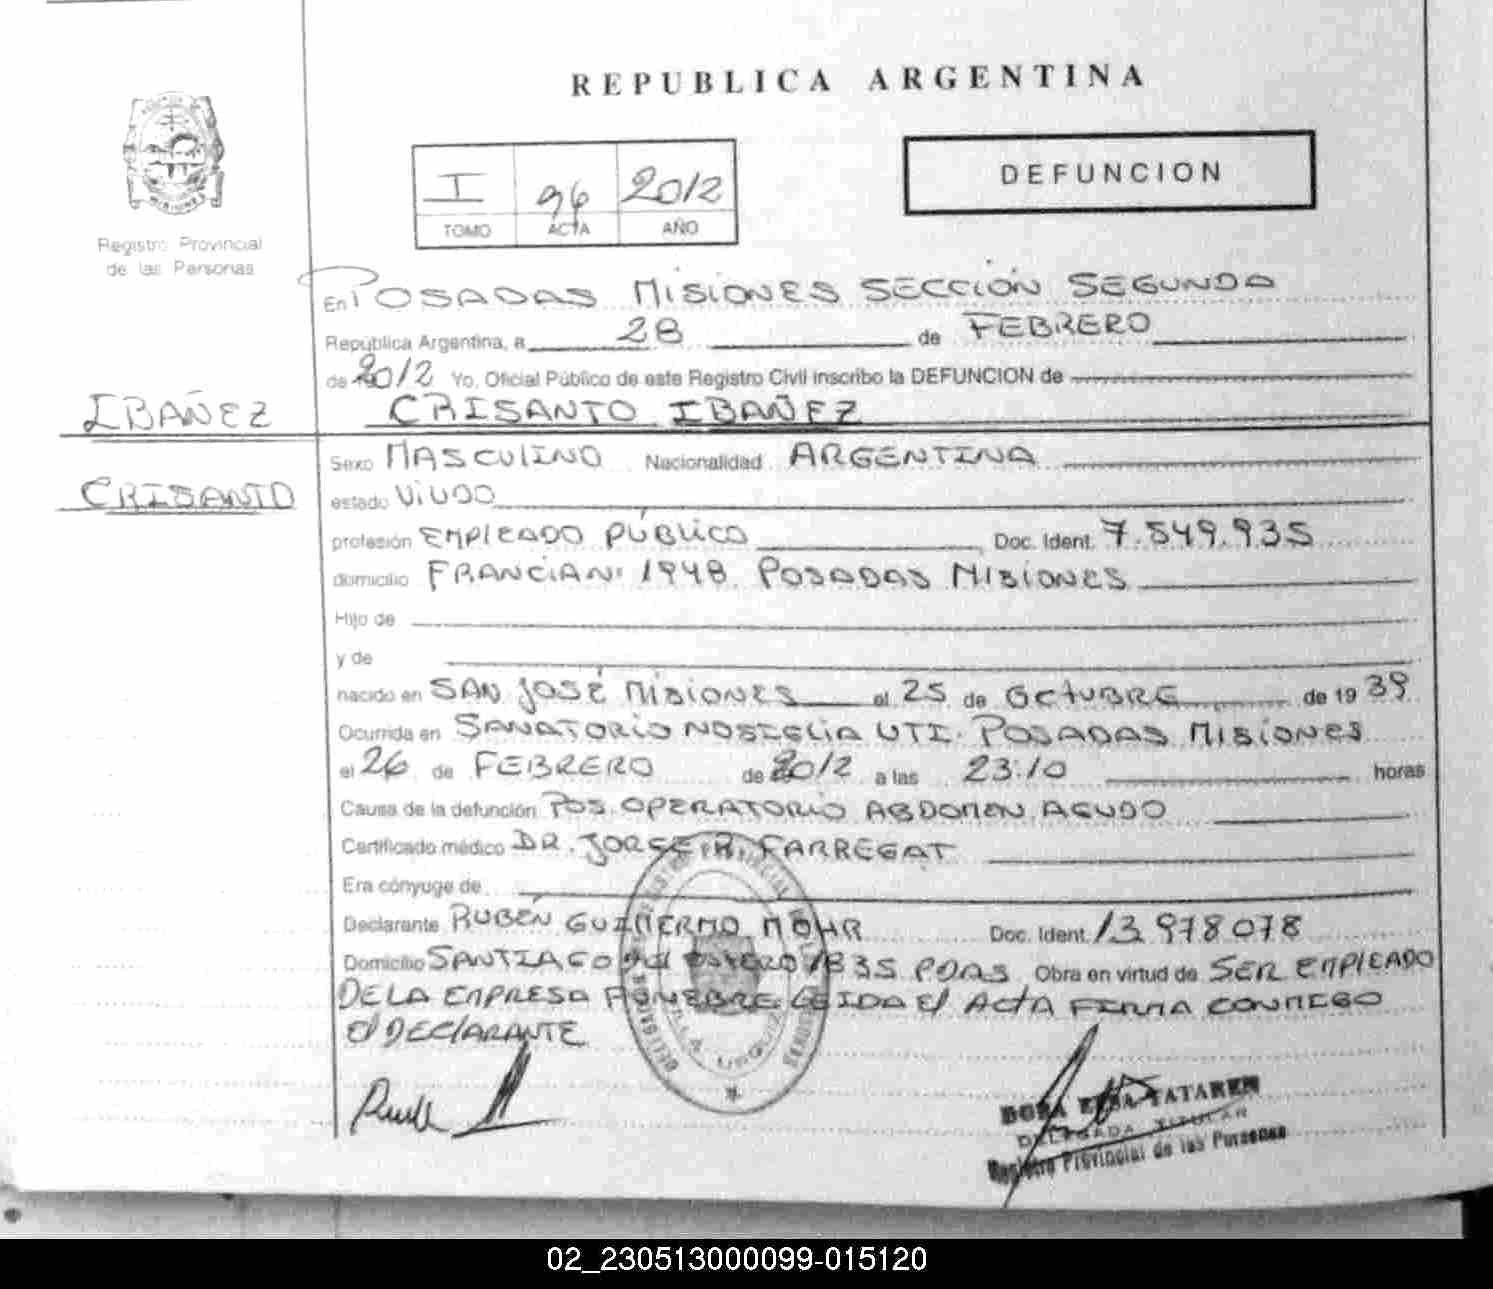 REPUBLICA ARGENTINA
I 96 2012
TOMO ACTA AÑO
DEFUNCION
MISIONES
Registro Provincial
de las Personas
En POSADAS MISIONES SECCIÓN SEGUNDA
República Argentina, a 28 de FEBRERO
de 2012 Yo, Oficial Público de este Registro Civil inscribo la DEFUNCION de
IBAÑEZ CRISANTO IBAÑEZ
CRISANTO
Sexo MASCULINO Nacionalidad ARGENTINA
estado VIUDO
profesión EMPLEADO PÚBLICO Doc. Ident. 7.549.935
domicilio FRANCIANI 1948 POSADAS MISIONES
Hijo de
y de
nacido en SAN JOSÉ MISIONES el 25 de OCTUBRE de 1939
Ocurrida en SANATORIO NOSIGLIA UTI. POSADAS MISIONES
el 26 de FEBRERO de 2012 a las 23:10 horas
Causa de la defunción POS. OPERATORIO ABDOMEN AGUDO
Certificado médico DR. JORGE R. FARREGAT
Era cónyuge de
Declarante RUBÉN GUILLERMO MOHR Doc. Ident. 13978078
Domicilio SANTIAGO del ESTERO 1835 PDAS Obra en virtud de SER EMPLEADO
DE LA EMPRESA FÚNEBRE LEIDA El ACTA FIRMA CONMIGO
El DECLARANTE
DELEGADA TITULAR
Registro Provincial de las Personas
02_230513000099-015120